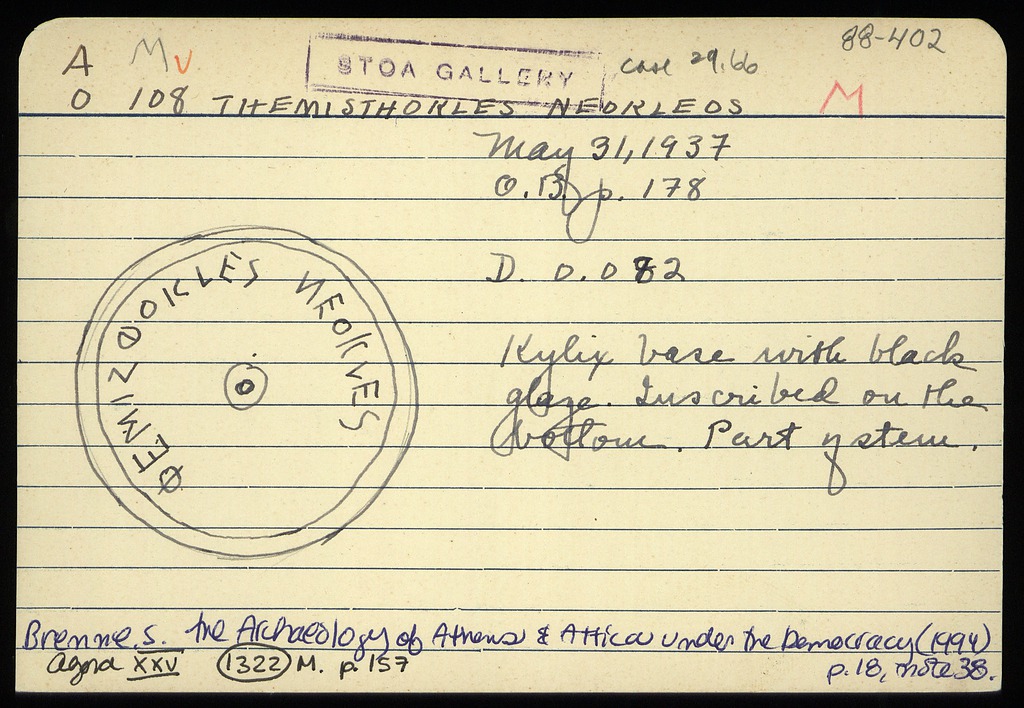 88-402
A Mv STOA GALLERY case 29.66
O 108 THEMISTHOKLES NEOKLEOS M
May 31, 1937
O.B. p. 178
D. 0.082
ΘEMIZΘOKLES NEOKLES
Kylix base with black
glaze. Inscribed on the
bottom. Part of stem.
Brenne, S. The Archaeology of Athens & Attica under the Democracy (1994)
Agora XXV 1322 M. p. 157 p. 18, note 38.